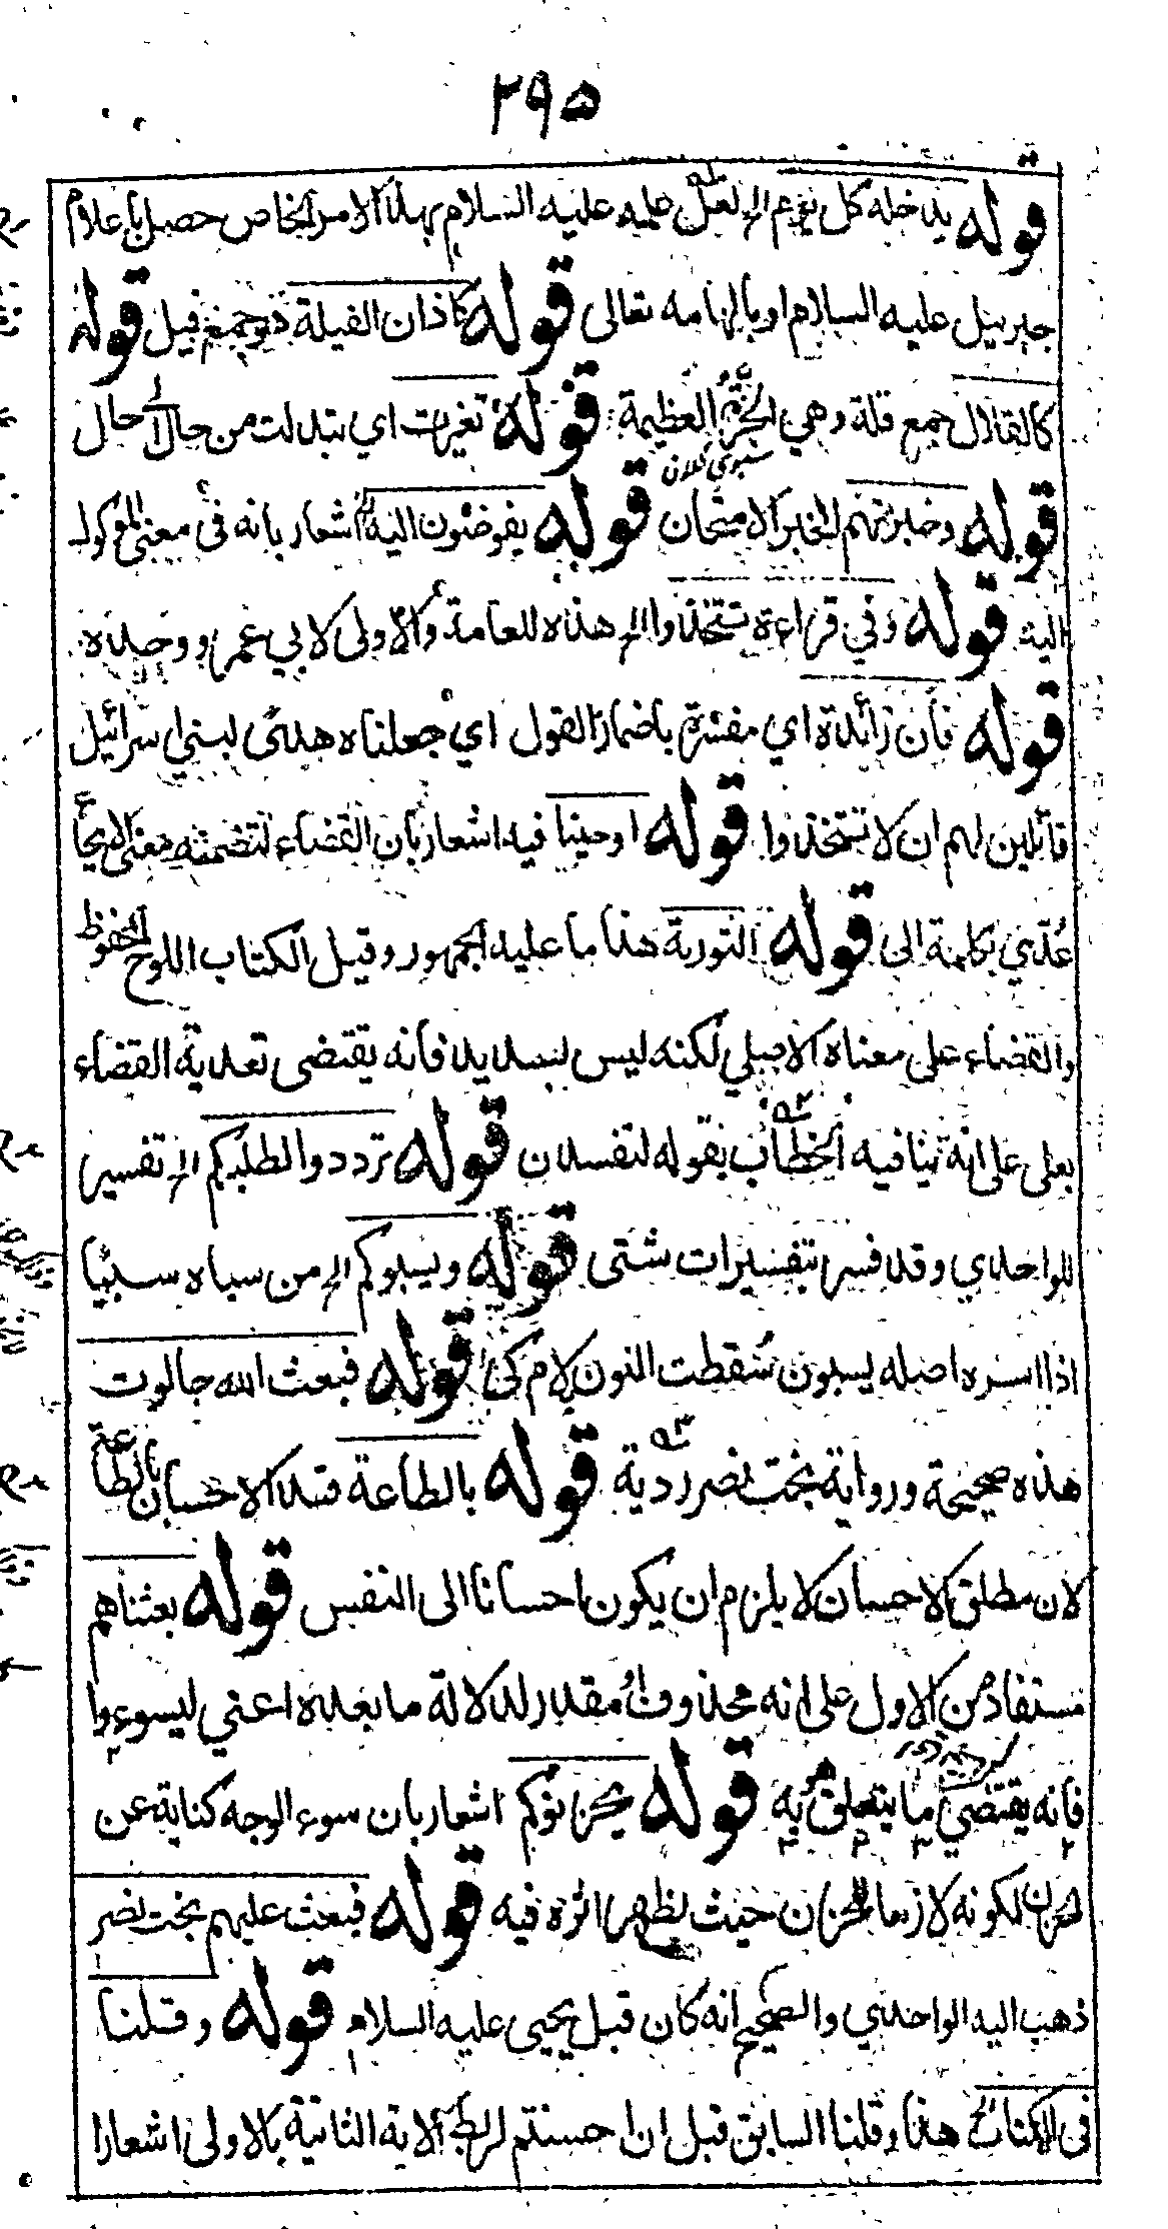 ۲۹۵
قوله يدخله كل يوم الخ لعل علمه عليه السلام بهذا الامر الخاص حصل باعلام
جبرئيل عليه السلام او بالهامه تعالى قوله كاذان الفيلة هو جمع فيل قوله
كالقلال جمع قلة وهي الجرة العظيمة قوله تغيرت اي تبدلت من حال الى حال
سبوي كلان
قوله وخبرتهم الخبر الامتحان قوله يفوضون اليه اشعار بانه في معنى الموكول
اليه قوله وفي قراءة تتخذوا الخ هذه للعامة والاولى لابي عمرو وحده
قوله فان زائدة اي مفسرة باضمار القول اي جعلناه هدى لبني اسرائيل
قائلين لهم ان لا تتخذوا قوله اوحينا فيه اشعار بان القضاء لتضمنه معنى الايحاء
عدي بكلمة الى قوله التورية هذا ما عليه الجمهور وقيل الكتاب اللوح المحفوظ
والقضاء على معناه الاصلي لكنه ليس بسديد فانه يقتضى تعدية القضاء
بعلى على انه ينافيه الخطاب بقوله لتفسدن قوله ترددوا لطلبكم الخ تفسير
للواحدي وقد فسر بتفسيرات شتى قوله ويسبوكم الخ من سباه سبيا
اذا اسره اصله يسبون سقطت النون بلام كي قوله فبعث الله جالوت
هذه صحيحة ورواية بخت نصر ردية قوله بالطاعة قيد الاحسان بالطاعة
لان مطلق الاحسان لا يلزم ان يكون احسانا الى النفس قوله بعثناهم
مستفاد من الاول على انه محذوف مقدر لدلالة ما بعده اعني ليسوءوا
فانه يقتضي ما يتعلق به قوله يحزنوكم اشعار بان سوء الوجه كناية عن
الحزن لكونه لازما للحزن حيث يظهر اثره فيه قوله فبعث عليهم بخت نصر
ذهب اليه الواحدي والصحيح انه كان قبل يحيى عليه السلام قوله وقلنا
في الكتاب الخ هذا وقلنا السابق قبل ان احسنتم لربط الاية الثانية بالاولى اشعارا